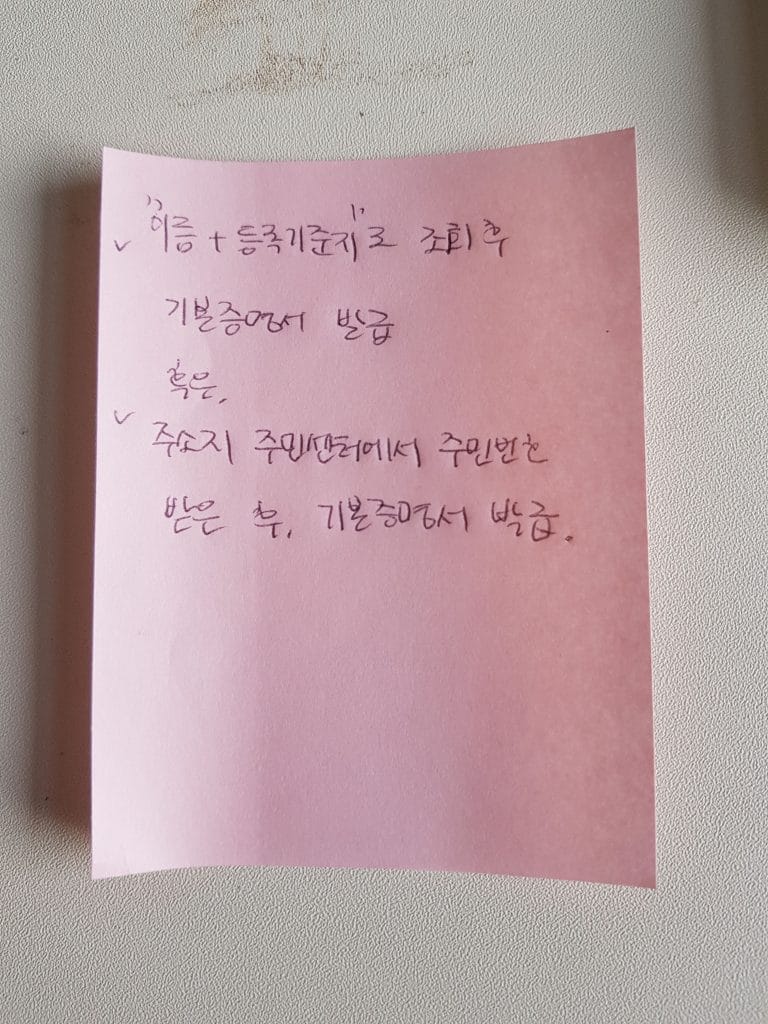 ✓ "이름 + 등록기준지"로 조회 후
기본증명서 발급
혹은,
✓ 주소지 주민센터에서 주민번호
받은 후, 기본증명서 발급.